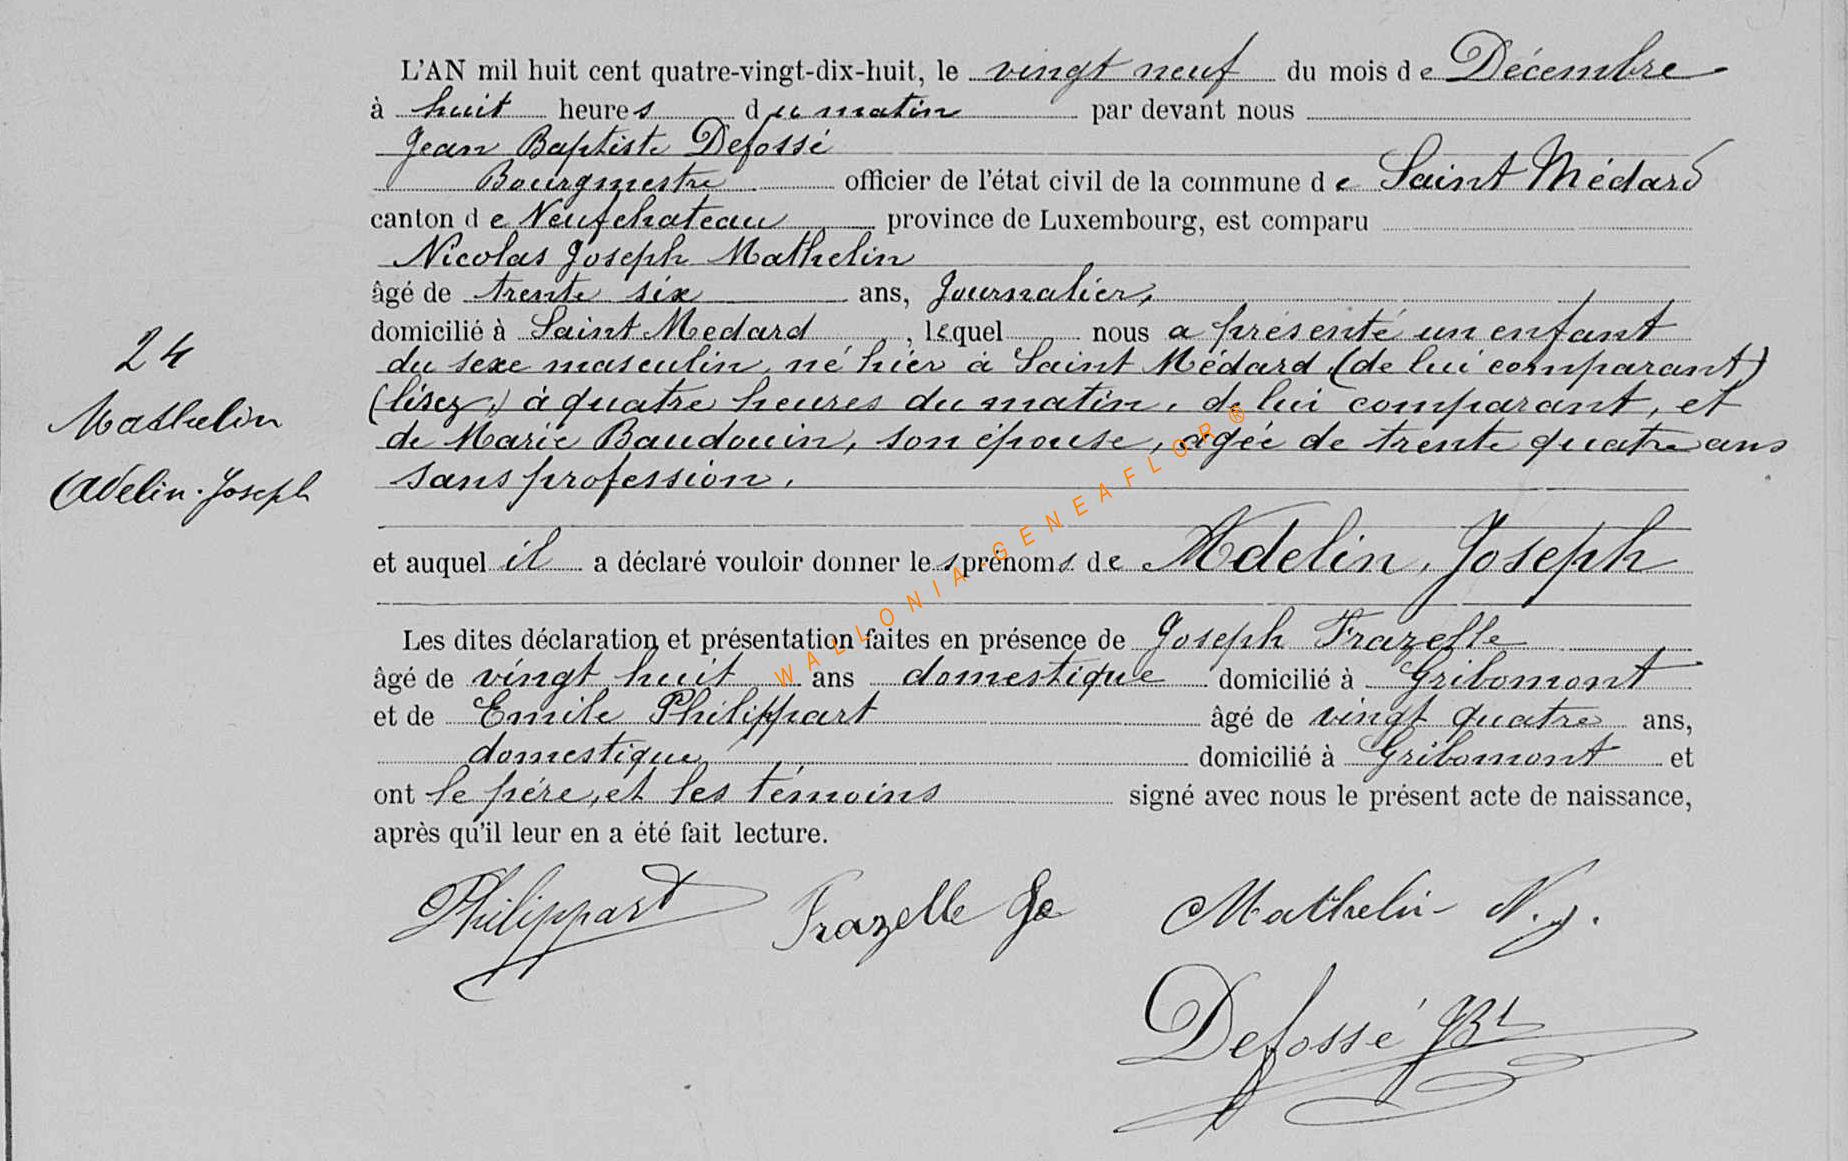 L'AN mil huit cent quatre-vingt-dix-huit, le vingt neuf du mois de Décembre
à huit heures du matin par devant nous
Jean Baptiste Defossé
Bourgmestre officier de l'état civil de la commune de Saint Médard
canton de Neufchateau province de Luxembourg, est comparu
Nicolas Joseph Mathelin
âgé de trente six ans, Journalier,
domicilié à Saint Medard, lequel nous a présenté un enfant
du sexe masculin, né hier à Saint Médard (de lui comparant)
(lisez,) à quatre heures du matin, de lui comparant, et
de Marie Baudouin, son épouse, agée de trente quatre ans
sans profession.
24
Mathelin
Adelin-Joseph
et auquel il a déclaré vouloir donner les prénoms de Adelin, Joseph
Les dites déclaration et présentation faites en présence de Joseph Frazelle
âgé de vingt huit ans domestique domicilié à Gribomont
et de Emile Philippart âgé de vingt quatre ans,
domestique domicilié à Gribomont et
ont le père, et les témoins signé avec nous le présent acte de naissance,
après qu'il leur en a été fait lecture.
Philippart Frazelle Je Mathelin N.J.
Defossé JBt
WALLONIA-GENEAFLOR®